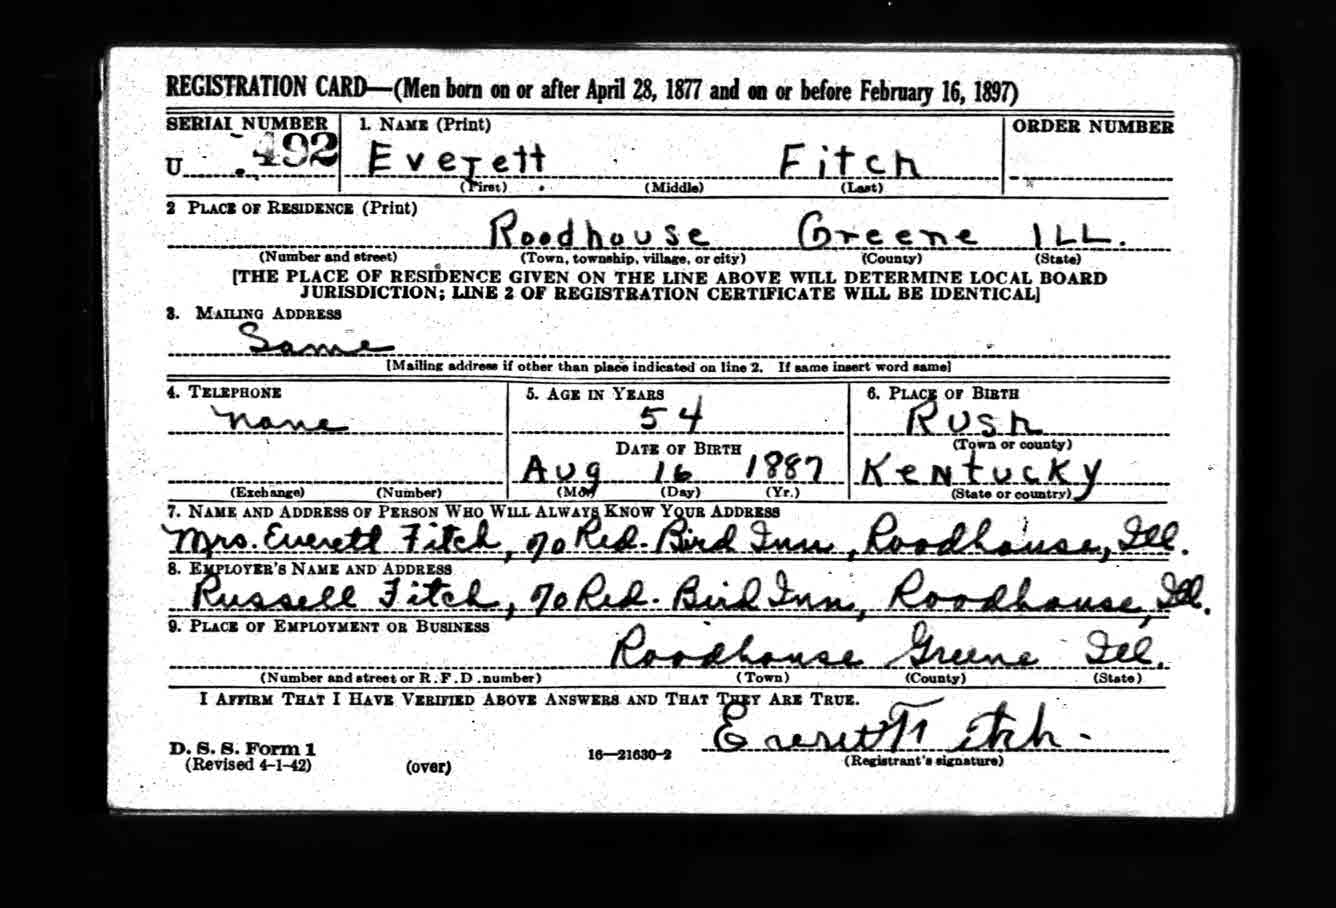 REGISTRATION CARD—(Men born on or after April 28, 1877 and on or before February 16, 1897)
SERIAL NUMBER 1. NAME (Print) ORDER NUMBER
U 492 Everett Fitch
(First) (Middle) (Last)
2 PLACE OF RESIDENCE (Print)
Roodhouse Greene ILL.
(Number and street) (Town, township, village, or city) (County) (State)
[THE PLACE OF RESIDENCE GIVEN ON THE LINE ABOVE WILL DETERMINE LOCAL BOARD
JURISDICTION; LINE 2 OF REGISTRATION CERTIFICATE WILL BE IDENTICAL]
3. MAILING ADDRESS
Same
[Mailing address if other than place indicated on line 2. If same insert word same]
4. TELEPHONE 5. AGE IN YEARS 6. PLACE OF BIRTH
none 54 Rush
DATE OF BIRTH (Town or county)
Aug 16 1887 Kentucky
(Exchange) (Number) (Mo.) (Day) (Yr.) (State or country)
7. NAME AND ADDRESS OF PERSON WHO WILL ALWAYS KNOW YOUR ADDRESS
Mrs. Everett Fitch, % Red-Bird Inn, Roodhouse, Ill.
8. EMPLOYER'S NAME AND ADDRESS
Russell Fitch, % Red-Bird Inn, Roodhouse, Ill.
9. PLACE OF EMPLOYMENT OR BUSINESS
Roodhouse Greene Ill.
(Number and street or R. F. D. number) (Town) (County) (State)
I AFFIRM THAT I HAVE VERIFIED ABOVE ANSWERS AND THAT THEY ARE TRUE.
Everett Fitch.
D. S. S. Form 1 16—21630-2 (Registrant's signature)
(Revised 4-1-42) (over)